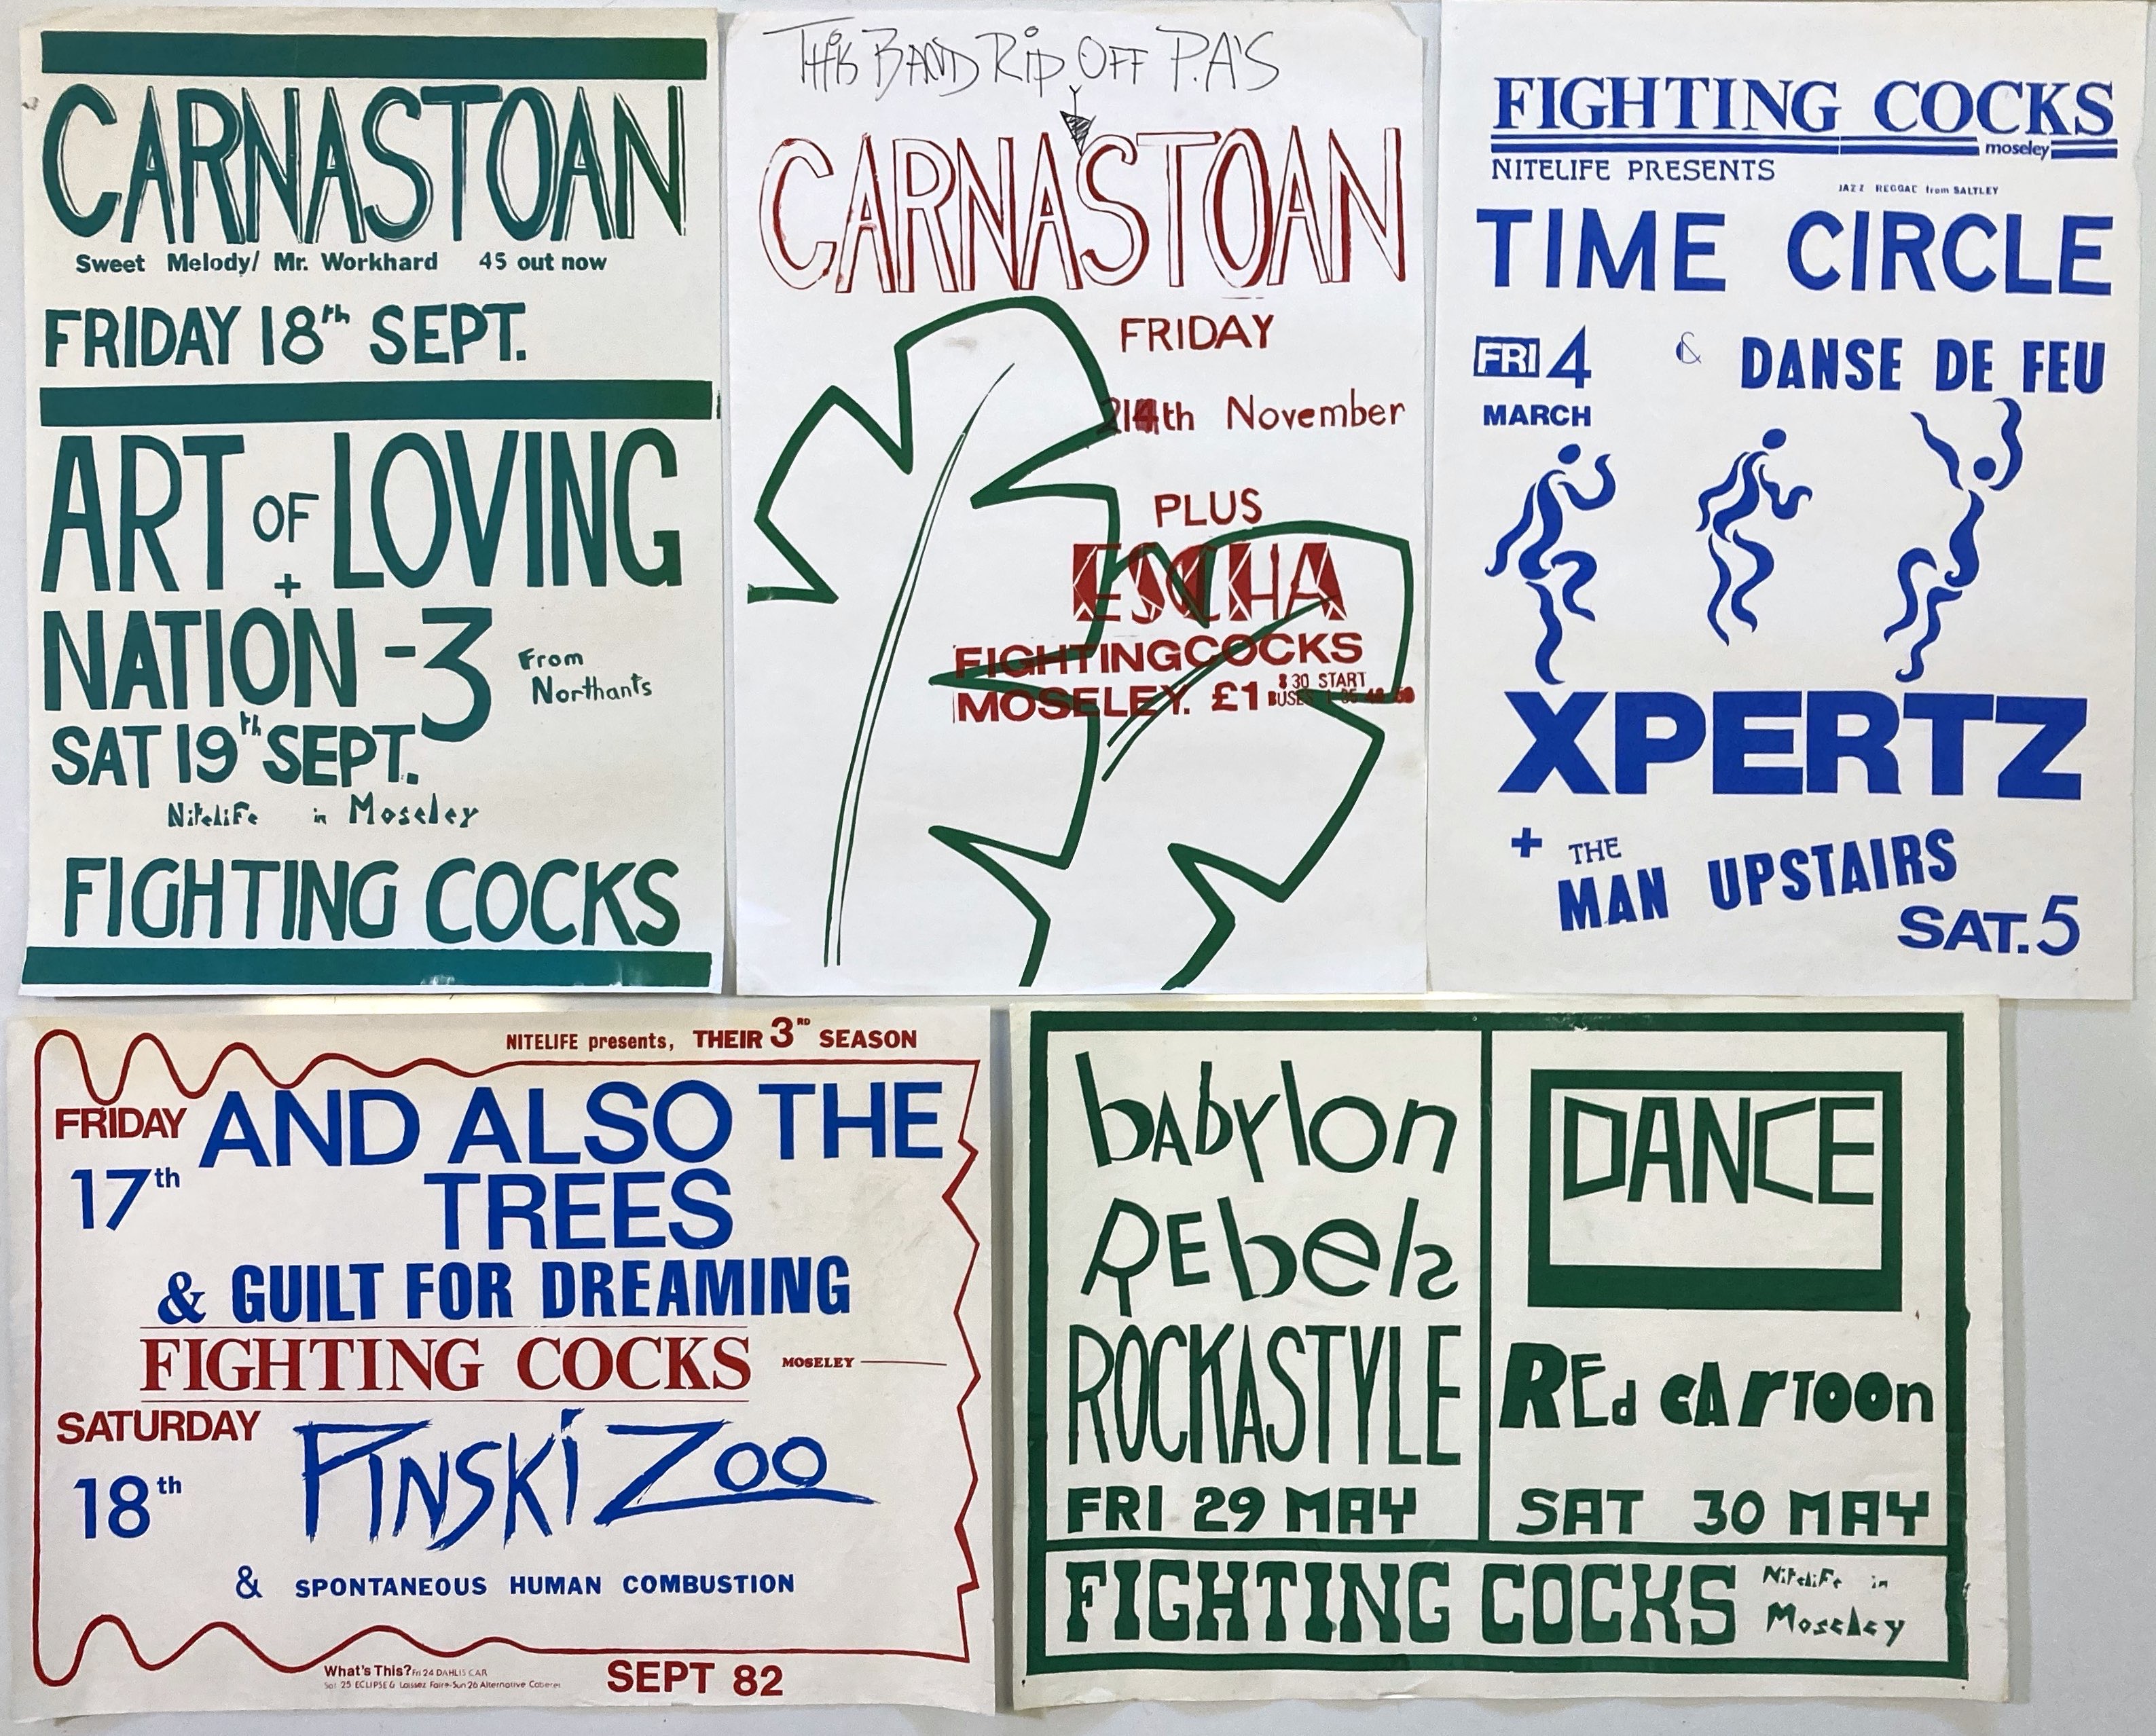 CARNASTOAN
Sweet Melody/ Mr. Workhard 45 out now
FRIDAY 18th SEPT.
ART OF LOVING
+
NATION-3 From Northants
SAT 19th SEPT.
Nitelife in Moseley
FIGHTING COCKS
THIS BAND RIP OFF P.A'S
CARNASTOAN
FRIDAY
th November
PLUS
ESCHA
FIGHTINGCOCKS
MOSELEY. £1 8 30 START
FIGHTING COCKS
moseley
NITELIFE PRESENTS
JAZZ REGGAE from SALTLEY
TIME CIRCLE
FRI 4 & DANSE DE FEU
MARCH
XPERTZ
+ THE
MAN UPSTAIRS
SAT. 5
NITELIFE presents, THEIR 3RD SEASON
FRIDAY AND ALSO THE
17th TREES
& GUILT FOR DREAMING
FIGHTING COCKS MOSELEY
SATURDAY PINSKI ZOO
18th
& SPONTANEOUS HUMAN COMBUSTION
What's This? Fri 24 DAHLIS CAR
Sat 25 ECLIPSE & Laissez Faire-Sun 26 Alternative Caberet
SEPT 82
bAbylon
REbels
ROCKASTYLE
FRI 29 MAY
DANCE
REd cARTOOn
SAT 30 MAY
FIGHTING COCKS Nitelife in
Moseley